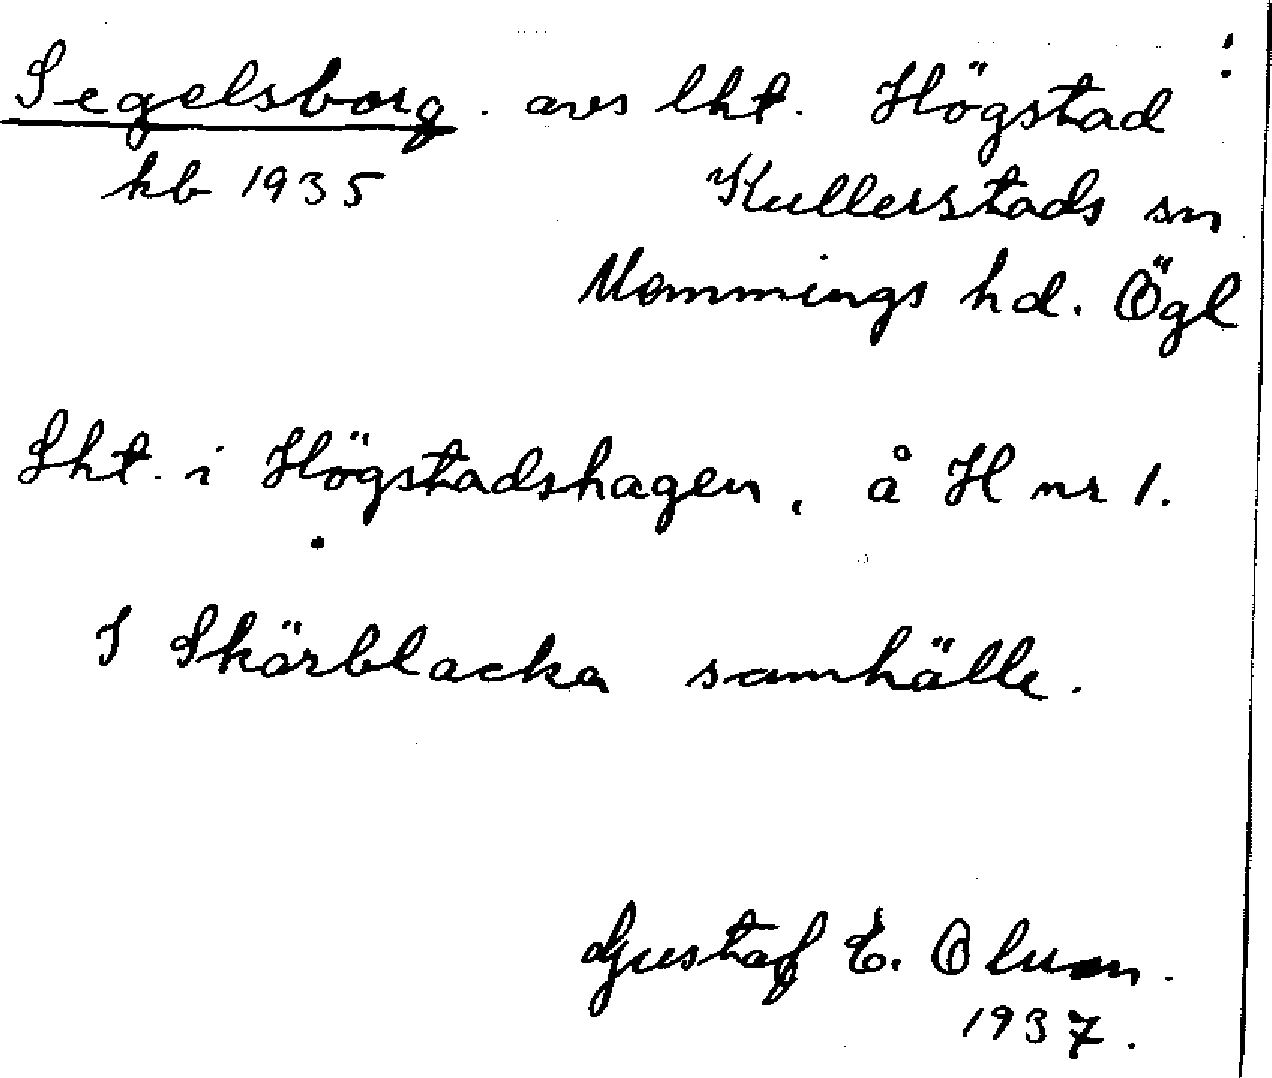 Segelsborg. avs lht. Högstad
kb 1935 Kullerstads sn
Memmings hd. Ögl
Lht. i Högstadshagen, å H nr 1.
I Skärblacka samhälle.
Gustaf E. Oluson.
1937.